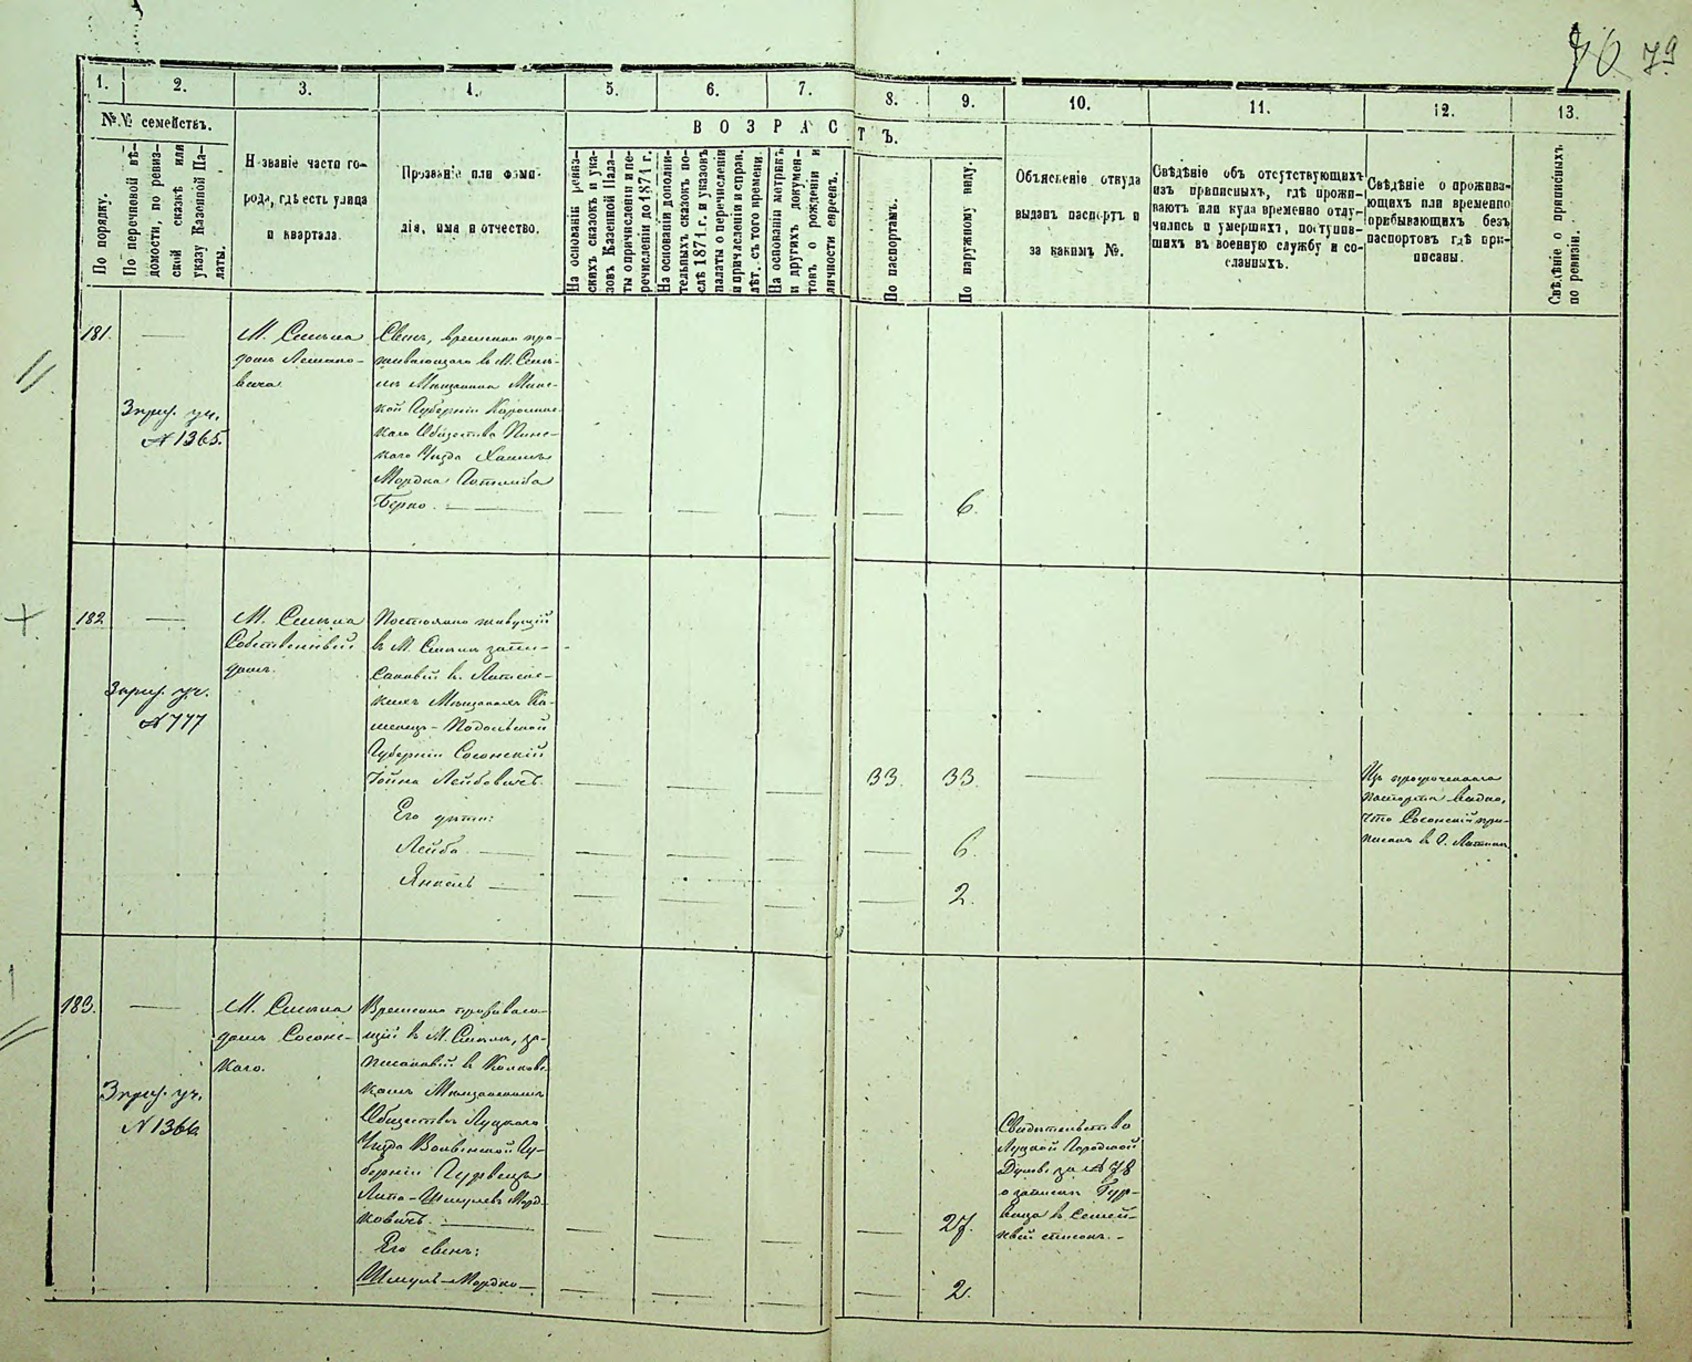 76 79
1. 2. 3. 4. 5. 6. 7. 8. 9. 10. 11. 12. 13.
№№ семействъ.
По порядку.
По перечневой вѣ-
домости, по ревиз-
ской сказкѣ или
указу Казенной Па-
латы.
Названіе части го-
рода, гдѣ есть улица
и квартала.
Прозваніе или фами-
лія, имя и отчество.
ВОЗРАСТЪ.
На основаніи ревиз-
скихъ сказокъ и ука-
зовъ Казенной Пала-
ты о причисленіи и пе-
речисленіи до 1874 г.
На основаніи дополни-
тельныхъ сказокъ по-
слѣ 1874 г. и указовъ
палаты о перечисленіи
и причисленіи и справ.
лѣт. съ того времени.
На основаніи метрикъ
и другихъ докумен-
товъ о рожденіи и
личности евреевъ.
По паспортамъ.
По наружному виду.
Объясненіе откуда
выданъ паспортъ и
за какимъ №.
Свѣдѣніе объ отсутствующихъ
изъ приписныхъ, гдѣ прожи-
ваютъ или куда временно отлу-
чились и умершихъ, поступив-
шихъ въ военную службу и со-
сланныхъ.
Свѣдѣніе о прожива-
ющихъ или временно
прибывающихъ безъ
паспортовъ гдѣ при-
писаны.
Свѣдѣніе о приписныхъ
по ревизіи.
181.
Зприз. уч.
№ 1365.
М. Смѣла
домъ
вича
Сынъ, временно про-
живающаго в М. Смѣ-
лѣ Мѣщанина Минс-
кой Губерніи
каго Общества Пинс-
каго Уѣзда Хаимъ
Мордка
Берко.
6.
182.
Зприз. уч.
№ 777
М. Смѣла
Собственный
домъ.
Постоянно живущій
в М. Смѣлѣ запи-
санный в.
кихъ Мѣщанахъ Ка-
менецъ-Подольской
Губерніи Сосонскій
Іойна Лейбовичъ.
33. 33.
Изъ просроченнаго
паспорта видно,
что Сосонскій при-
писанъ в
Его дѣти:
Лейба
6.
Янкель
2.
183.
Зприз. уч.
№ 1366
М. Смѣла
домъ Сосонс-
каго.
Временно пребываю-
щій в М. Смѣлѣ, за-
писанный в Колковс
комъ Мѣщанскомъ
Обществѣ Луцкаго
Уѣзда Волынской Гу-
берніи Гурвицъ
Липа-Шмулевъ Морд-
ковичъ.
27.
Свидѣтельство
Луцкой Городской
Думы за № 78
о записи Гур-
вица в Семей-
ный списокъ.
Его сынъ:
Шмуль-Мордко
2.